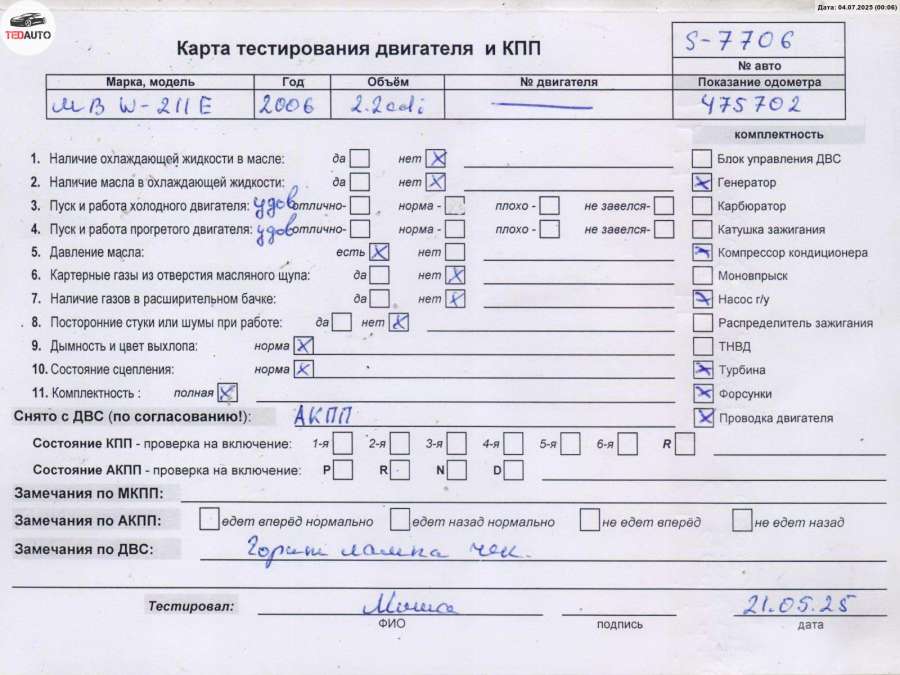 Дата: 04.07.2025 (00:06)
TEDAUTO
Карта тестирования двигателя и КПП
S-7706
№ авто
Марка, модель Год Объём № двигателя Показание одометра
МВ W-211 E 2006 2.2 cdi — 475702
комплектность
1. Наличие охлаждающей жидкости в масле: да нет X Блок управления ДВС
2. Наличие масла в охлаждающей жидкости: да нет X X Генератор
3. Пуск и работа холодного двигателя: удов отлично- норма - плохо - не завелся- Карбюратор
4. Пуск и работа прогретого двигателя: удов отлично- норма - плохо - не завелся- Катушка зажигания
5. Давление масла: есть X нет X Компрессор кондиционера
6. Картерные газы из отверстия масляного щупа: да нет X Моновпрыск
7. Наличие газов в расширительном бачке: да нет X X Насос г/у
8. Посторонние стуки или шумы при работе: да нет X Распределитель зажигания
9. Дымность и цвет выхлопа: норма X ТНВД
10. Состояние сцепления: норма X X Турбина
11. Комплектность : полная X X Форсунки
Снято с ДВС (по согласованию!): АКПП X Проводка двигателя
Состояние КПП - проверка на включение: 1-я 2-я 3-я 4-я 5-я 6-я R
Состояние АКПП - проверка на включение: P R N D
Замечания по МКПП:
Замечания по АКПП: едет вперёд нормально едет назад нормально не едет вперёд не едет назад
Замечания по ДВС: Горит лампа чек.
Тестировал: Миша 21.05.25
ФИО подпись дата